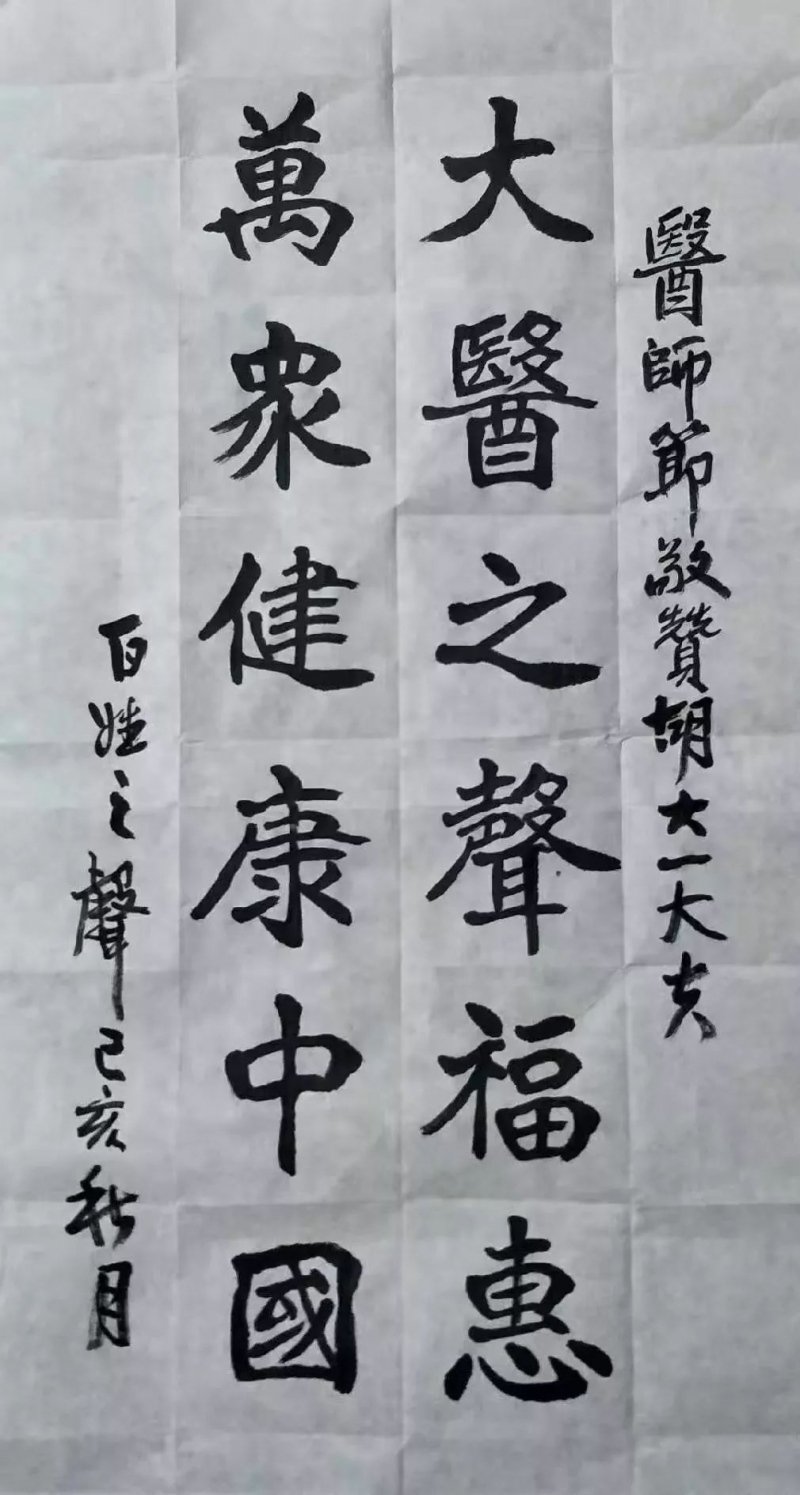 醫師節敬贊胡大一大夫
大醫之聲福惠
萬眾健康中國
百姓之聲己亥秋月